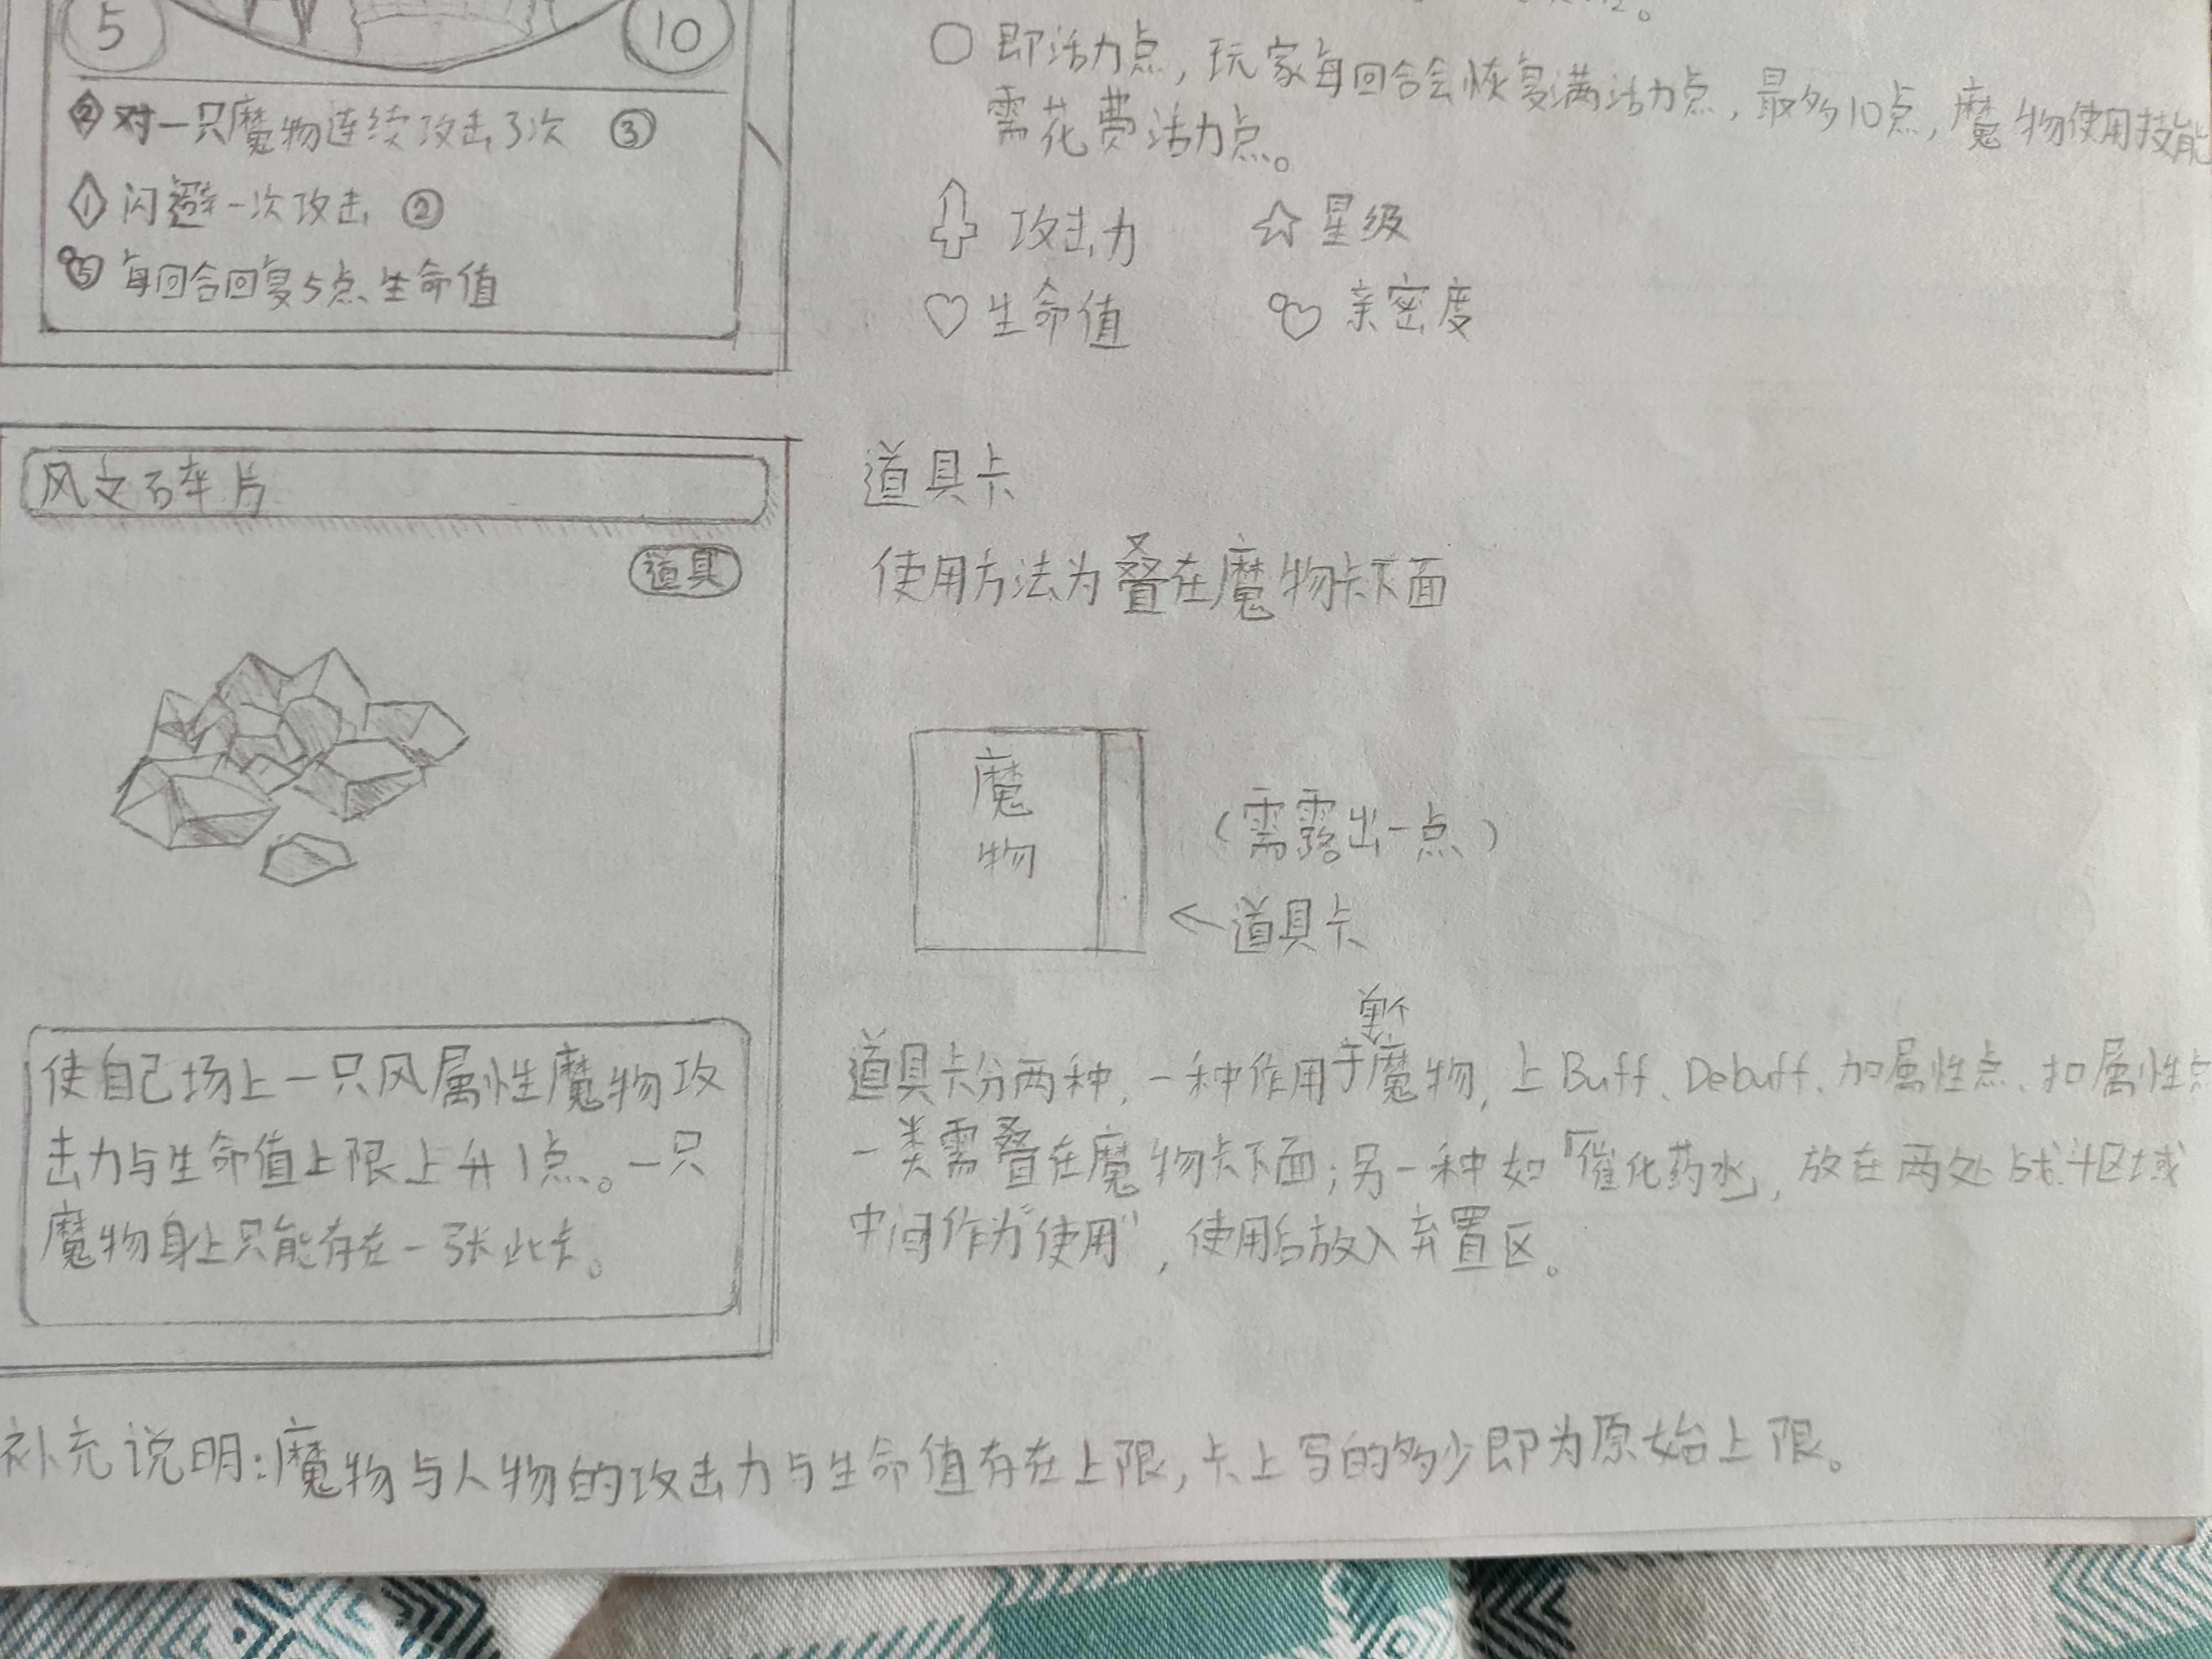 5 10
②对一只魔物连续攻击3次 ③
①闪避一次攻击 ②
⑤每回合回复5点生命值
○ 即活力点，玩家每回合会恢复满活力点，最多10点，魔物使用技能
需花费活力点。
攻击力 ☆星级
♡生命值 亲密度
风之碎片
道具
使自己场上一只风属性魔物攻
击力与生命值上限上升1点。一只
魔物身上只能存在一张此卡。
道具卡
使用方法为叠在魔物卡下面
魔
物
（需露出一点）
←道具卡
单个
道具卡分两种，一种作用于魔物，上Buff、Debuff、加属性点、扣属性点
一类需叠在魔物卡下面；另一种如「催化药水」，放在两处战斗区域
中间作为“使用”，使用后放入弃置区。
补充说明：魔物与人物的攻击力与生命值存在上限，卡上写的多少即为原始上限。